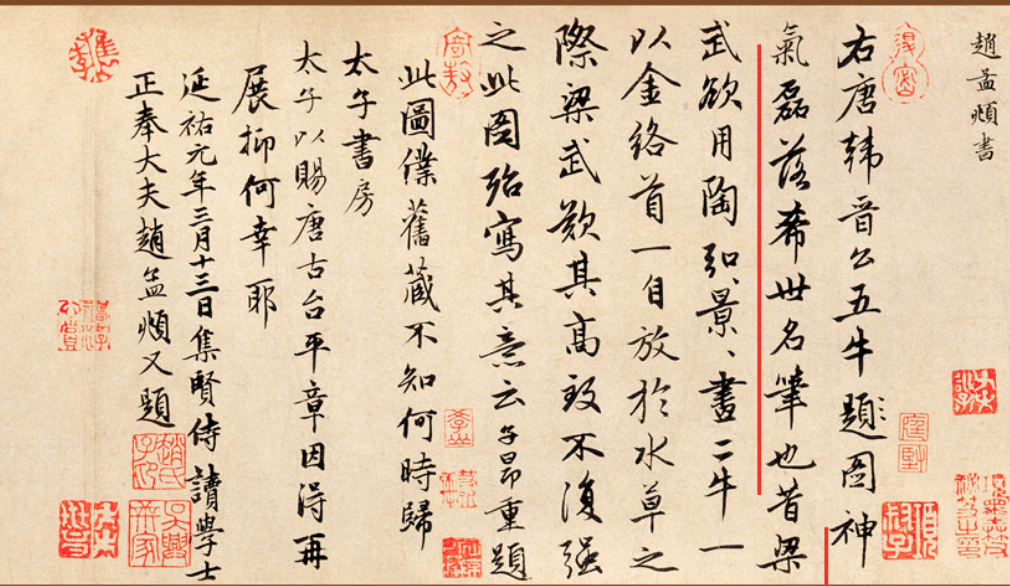 趙孟頫書
右唐韓晉公五牛圖神
氣磊落希世名筆也昔梁
武欲用陶弘景畫二牛一
以金絡首一自放於水草之
際梁武歎其高致不復强
之此圖殆寫其意云子昂重題
此圖僕舊藏不知何時歸
太子書房
太子以賜唐古台平章因得再
展抑何幸耶
延祐元年三月十三日集賢侍讀學士
正奉大夫趙孟頫又題